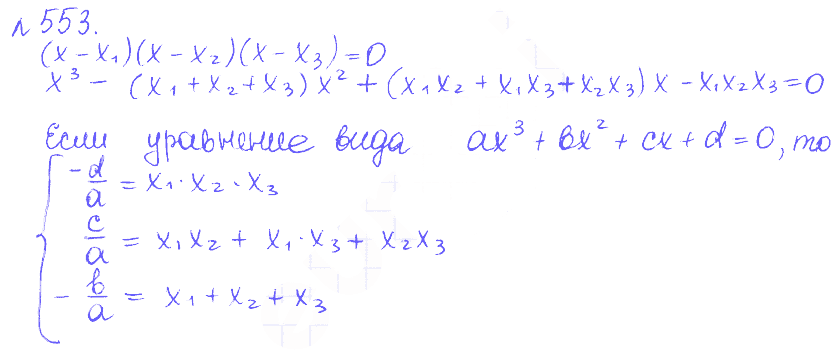 № 553.
(x - x₁)(x - x₂)(x - x₃) = 0
x³ - (x₁ + x₂ + x₃) x² + (x₁x₂ + x₁x₃ + x₂x₃) x - x₁x₂x₃ = 0
Если уравнение вида ax³ + bx² + cx + d = 0, то
{ -d/a = x₁ · x₂ · x₃
c/a = x₁x₂ + x₁ · x₃ + x₂x₃
- b/a = x₁ + x₂ + x₃